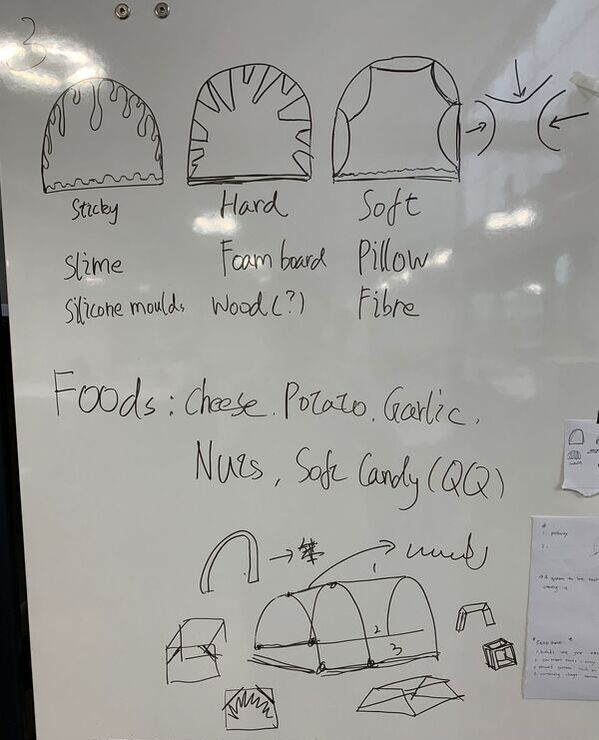 3
Sticky Hard Soft
Slime Foam board Pillow
Silicone moulds Wood(?) Fibre
Foods: Cheese. Potato. Garlic.
Nuts, Soft Candy (QQ)
1
2
3